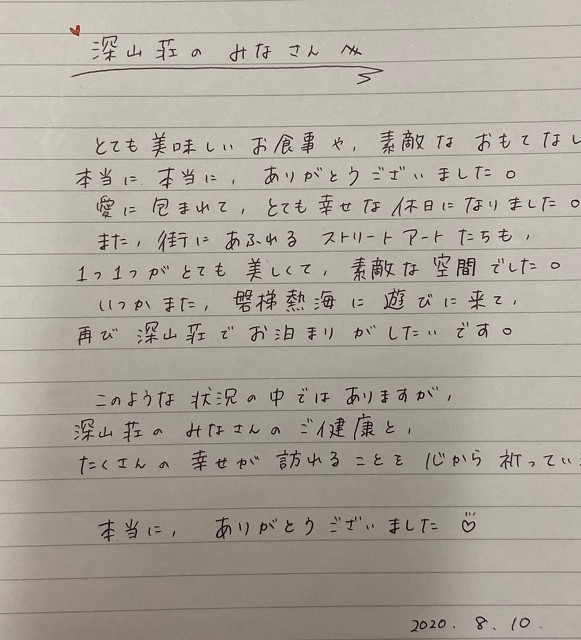 深山荘の みなさん
とても 美味しい お食事や, 素敵な おもてなし
本当に 本当に, ありがとうございました。
愛に 包まれて, とても 幸せな 休日になりました。
また, 街に あふれる ストリートアートたちも,
1つ1つがとても 美しくて, 素敵な 空間でした。
いつかまた, 磐梯熱海に 遊びに来て,
再び 深山荘で お泊まりがしたいです。
このような 状況の中ではありますが,
深山荘の みなさんのご健康と,
たくさんの 幸せが 訪れることを 心から 祈ってい
本当に, ありがとうございました
2020. 8. 10.